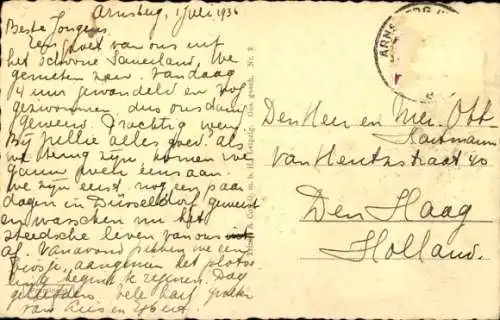 Arnsberg, 1 Juli 1936
Beste Jongens,
Een groet van ons uit
het schoone Sauerland. We
genieten zeer. Vandaag
4 uur gewandeld en nog
gezwommen, dus ons dam
geweerd. Prachtig weer.
Bij jullie alles goed. als
we terug zijn komen we
gauw even eens aan.
We zijn eerst nog een paar
dagen in Düsseldorf geweest
en wasschen nu het
steedsche leven van ons
af. Vanavond zitten we een
aangenaam het plotse-
ling begint te regenen. Dag
vele hart. groeten
van en
ARNSBERG
Den Heer en Mevr. Ott
Kaitmann
van Heutszstraat 40
Den Haag
Holland.